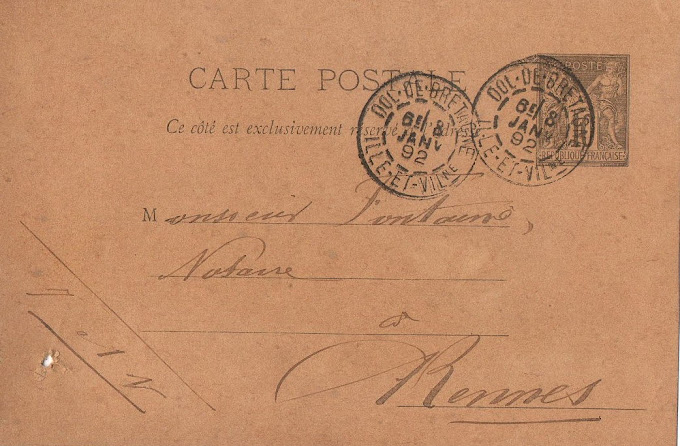 CARTE POSTALE
Ce côté est exclusivement réservé à l'adresse
DOL-DE-BRETAGNE
6E 8
JANV
92
ILLE-ET-VILNE
DOL-DE-BRETAGNE
6E 8
JANV
92
ILLE-ET-VILNE
POSTE
REPUBLIQUE FRANÇAISE
Monsieur Fontaine,
Notaire
à
Rennes